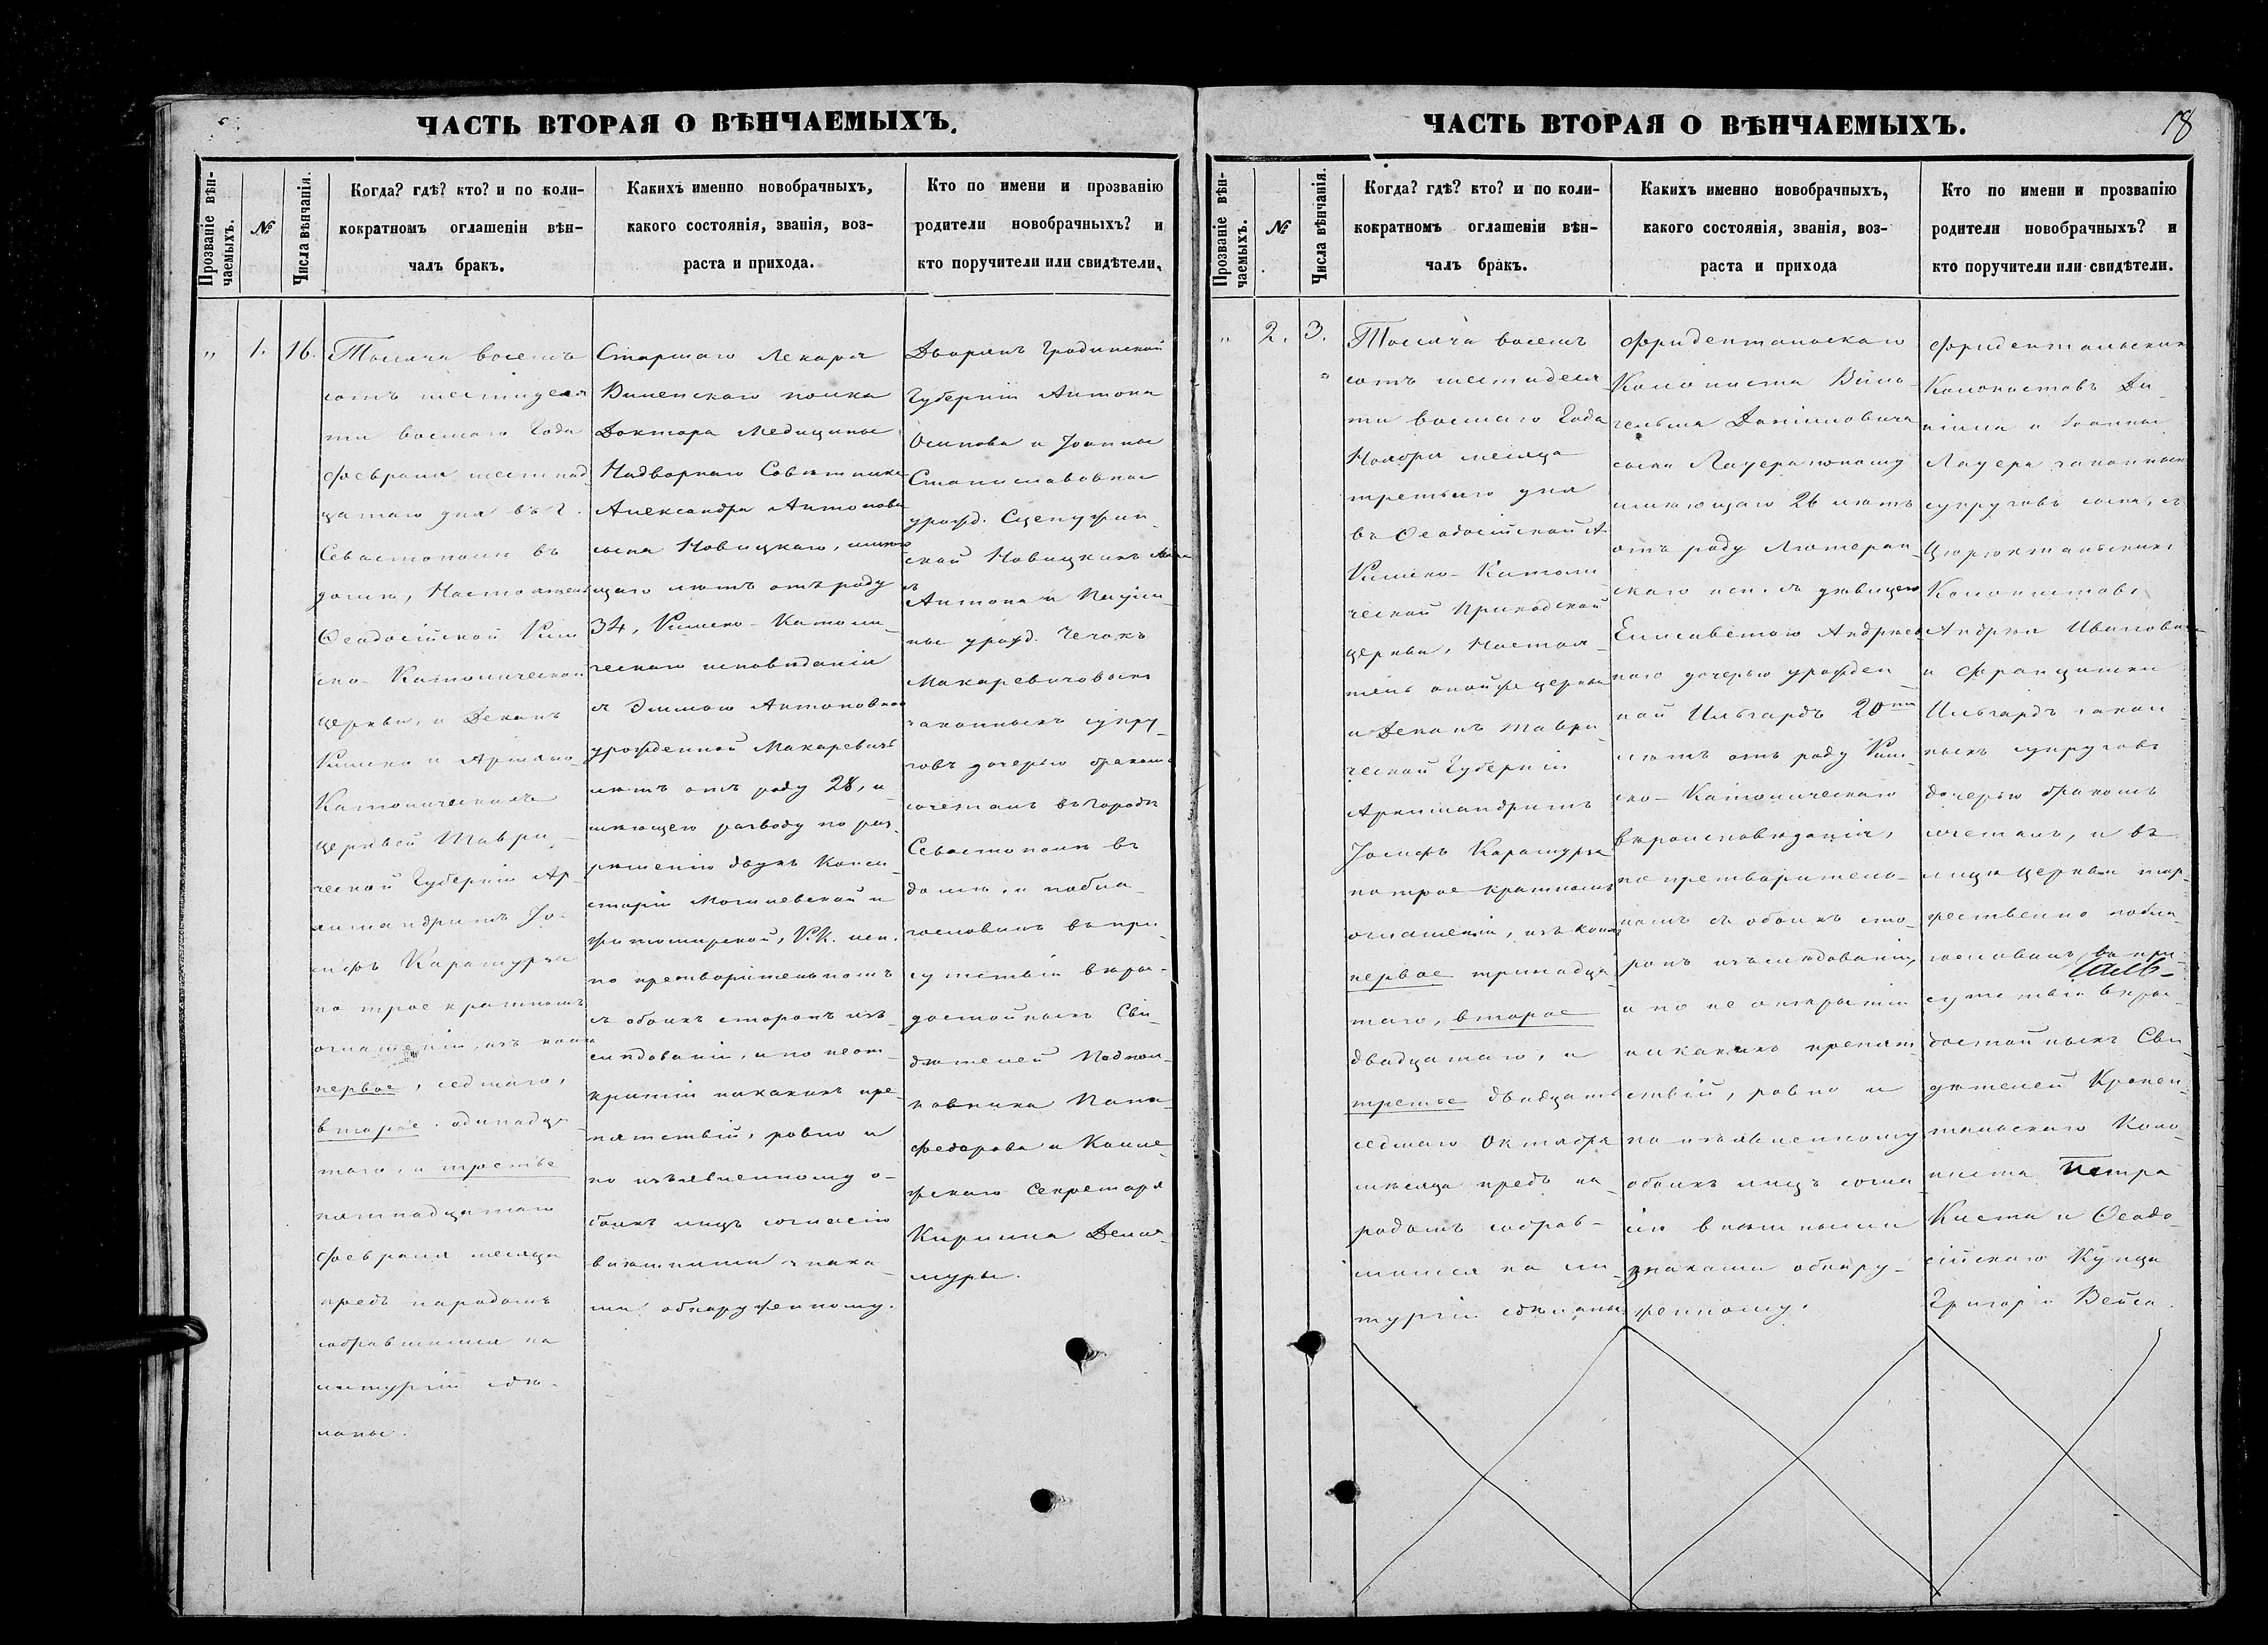 ЧАСТЬ ВТОРАЯ О ВѢНЧАЕМЫХЪ.
Прозваніе вѣн-
чаемыхъ.
№
Числа вѣнчанія.
Когда? гдѣ? кто? и по коли-
кократномъ оглашеніи вѣн-
чалъ бракъ.
Какихъ именно новобрачныхъ,
какого состоянія, званія, воз-
раста и прихода.
Кто по имени и прозванію
родители новобрачныхъ? и
кто поручители или свидѣтели.
„ 1. 16.
Тысяча восемъ
сотъ шестидеся
ти восмаго Года
Февраля шестнад
цатаго дня въ Г.
Севастополѣ въ
домѣ, Настоятель
Ѳеодосійской Рим
ско-Католической
церкви, и Деканъ
Римско и Армяно-
Католическихъ
церквей Таври-
ческой Губерніи Ар-
химандритъ Іо-
сифъ Карашурза
по трое кратномъ
оглашеніи, изъ коихъ
первое, седмаго,
второе, одинадца-
таго, и третье
пятнадцатаго
Февраля месяца
предъ народомъ
собравшимся на
литургіи сдѣ-
ланы.
Старшаго Лекаря
Виленскаго полка
Доктора Медицины
Надворнаго Совѣтника
Александра Антонова
сына Новицкаго, имѣю
щаго лѣтъ отъ роду
34, Римско-Католи-
ческаго исповѣданія
съ Эммою Антоновною
урожденной Макаревичъ
лѣтъ отъ роду 28, и-
мѣющею разводу по раз-
рѣшенію двухъ Конси-
сторій Могилевской и
Житомирской, Р.К. исп.
по претворительномъ
съ обоихъ сторонъ изъ-
слѣдованіи, и по неот-
крытіи никакихъ пре-
пятствій, ровно и
по изъявленному о-
боихъ лицъ согласію
внѣшними знака-
ми обнаруженному.
Дворянъ Гродинской
Губерніи Антона
Осипова и Іоанны
Станиславовны
урожд. Сцепужин-
ской Новицкихъ сына
съ
Антона и Паули-
ны урожд. Чечотъ
Макаревичовыхъ
законныхъ супру-
говъ дочерью бракомъ
сочеталъ въ Городѣ
Севастополѣ въ
домѣ, и побла-
гословилъ въ при-
сутствіи вѣро-
достойныхъ Сви-
дѣтелей Подпол-
ковника Папа-
федорова и Колле-
жскаго Секретаря
Кирилла Демья-
муры.
ЧАСТЬ ВТОРАЯ О ВѢНЧАЕМЫХЪ.
18
Прозваніе вѣн-
чаемыхъ.
№
Числа вѣнчанія.
Когда? гдѣ? кто? и по коли-
кократномъ оглашеніи вѣн-
чалъ бракъ.
Какихъ именно новобрачныхъ,
какого состоянія, званія, воз-
раста и прихода
Кто по имени и прозванію
родители новобрачныхъ? и
кто поручители или свидѣтели.
„ 2. 3.
Тысяча восемъ
сотъ шестидеся
ти восмаго Года
Ноября месяца
третьяго дня
въ Ѳеодосійской
Римско-Католи
ческой Приходской
церкви, Настоя-
тель оной же церкви
и Деканъ Таври-
ческой Губерніи
Архимандритъ
Іосифъ Карашурза
по трое кратномъ
оглашеніи, изъ коихъ
первое тринадца
таго, второе
двадцатаго, и
третье двадцать
седмаго Октября
мѣсяца предъ на-
родомъ собрав-
шимся на ли-
тургіи сдѣланы.
Фриденталскаго
Колониста Виль-
гельма Даніиловича
сына Лауера юношу
имѣющаго 26 лѣтъ
отъ роду Лютеран-
скаго исп. съ дѣвицею
Елисаветою Андреев
ною дочерью урожден-
ной Ильгардъ 20ти
лѣтъ отъ роду Рим-
ско-Католическаго
вѣроисповѣданія,
по претворитель-
номъ съ обоихъ сто-
ронъ изъслѣдованіи,
и по не открытіи
никакихъ препят-
ствій, ровно и
по изъявленному
обоихъ лицъ согла-
сію внѣшними
знаками обнару-
женному.
Фридентальскихъ
Колонистовъ Да-
ніила и Іоанны
Лауера законныхъ
супруговъ сына, съ
Цюрихтальскихъ
Колонистовъ
Андрея Иванова
и Франциски
Ильгардъ закон-
ныхъ супруговъ
дочерью бракомъ
сочеталъ, и въ
лицѣ церкви тор-
жественно побла-
гословилъ, въ при-
сутствіи вѣро-
достойныхъ Сви-
дѣтелей Кронен-
тальскаго Коло-
ниста Петра
Киста и Ѳеодо-
сійскаго Купца
Григорія Вейса.